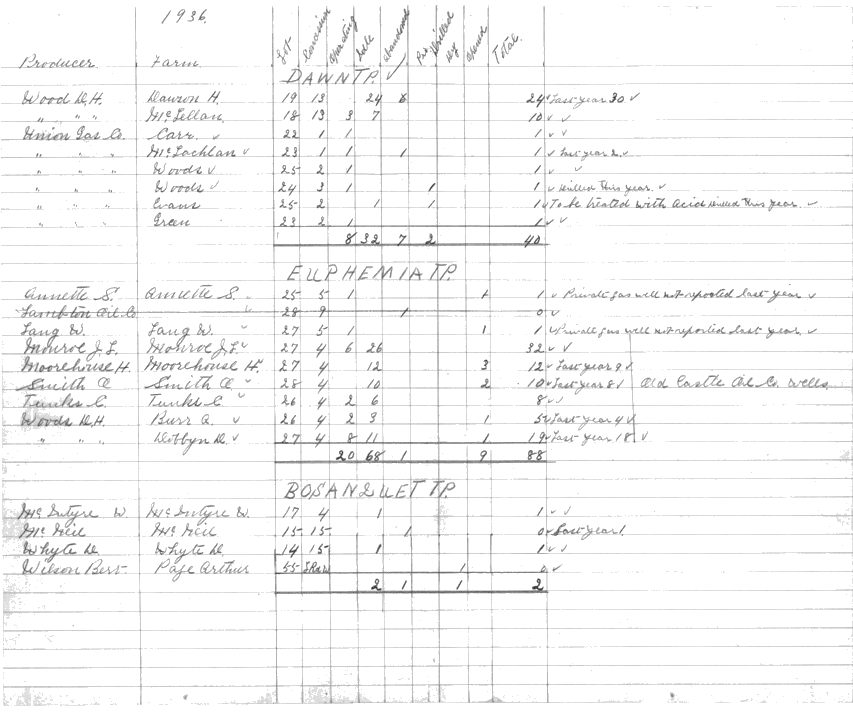 1936.
Producer Farm Lot Concession Operating Idle Abandoned Drilled Dry Total
DAWN TP. ✓
Wood D.H. Dawson H. 19 13 24 6 24 ✓ Last year 30 ✓
" " " McLellan 18 13 3 7 10 ✓ ✓
Union Gas Co. Carr. ✓ 22 1 1 1 ✓ ✓
" " " McLachlan ✓ 23 1 1 1 1 ✓ Last year 2 ✓
" " " Woods ✓ 25 2 1 1 ✓ ✓
" " " Woods ✓ 24 3 1 1 1 ✓ Drilled This year. ✓
" " " Evans 25 2 1 1 1 ✓ To be treated with acid Drilled This year. ✓
" " " Green 23 2 1 1 ✓ ✓
8 32 7 2 40
EUPHEMIA TP.
Annette S. Annette S. ✓ 25 5 1 1 1 ✓ Private gas well not reported last year ✓
Lambton Oil Co ✓ 28 9 1 0 ✓
Lang W. Lang W. ✓ 27 5 1 1 1 ✓ Private gas well not reported last year. ✓
Monroe J.L. Monroe J.L. ✓ 27 4 6 26 32 ✓ ✓
Moorehouse H. Moorehouse H. ✓ 27 4 12 3 12 ✓ Last year 9 ✓
Smith A Smith A. ✓ 28 4 10 2 10 ✓ Last year 8 ✓ Old Castle Oil Co. Wells
Tunks C. Tunks C ✓ 26 4 2 6 8 ✓ ✓
Woods D.H. Burr A. ✓ 26 4 2 3 1 5 ✓ Last year 4 ✓
" " " Dobbyn D. ✓ 27 4 8 11 1 19 ✓ Last year 18 ✓
20 68 1 9 88
BOSANQUET TP.
McIntyre W. McIntyre W. 17 4 1 1 ✓ ✓
McNeil McNeil 15 15 1 0 ✓ Last year 1.
Whyte D. Whyte D. 14 15 1 1 ✓ ✓
Wilson Bert Page Arthur 55 1 0 ✓
2 1 1 2